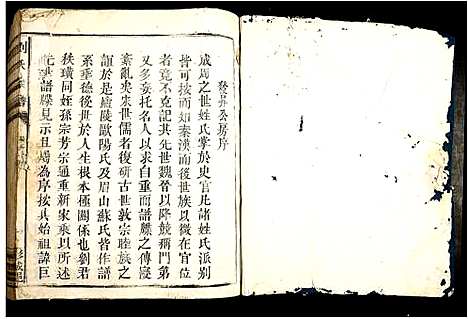 發昇公房序
成周之世姓氏掌於史官凡諸姓氏派别
皆可攷而知如秦漢而後世族以微在官位
者竟不可考其先世魏晉以降競稱門第
又多妄托名人以自重而譜牒之傳寖
紊亂矣宋世儒者復研古世敦宗睦族之
誼於是廬陵歐陽氏及眉山蘇氏皆作譜
系垂德後世於人生根本極關係也劉君
秩璜同姪孫宗芳宗通重新家乘以所述
先世譜牒見示且屬為序按其始祖諱巨
劉氏宗譜
彭城邑